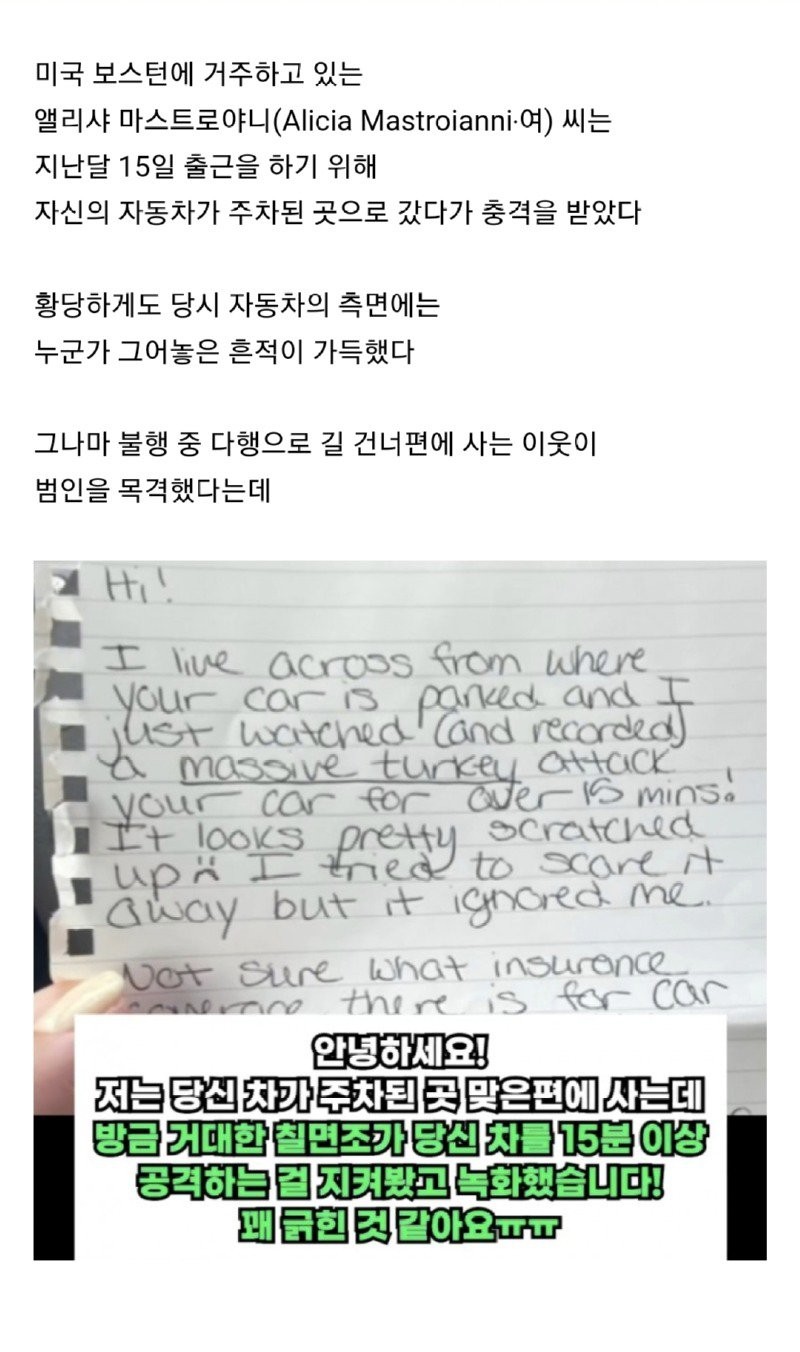 미국 보스턴에 거주하고 있는
앨리샤 마스트로야니(Alicia Mastroianni·여) 씨는
지난달 15일 출근을 하기 위해
자신의 자동차가 주차된 곳으로 갔다가 충격을 받았다
황당하게도 당시 자동차의 측면에는
누군가 그어놓은 흔적이 가득했다
그나마 불행 중 다행으로 길 건너편에 사는 이웃이
범인을 목격했다는데
Hi!
I live across from where
your car is parked and I
just watched (and recorded)
a massive turkey attack
your car for over 15 mins!
It looks pretty scratched
up :( I tried to scare it
away but it ignored me.
Not sure what insurance
coverage there is for car
안녕하세요!
저는 당신 차가 주차된 곳 맞은편에 사는데
방금 거대한 칠면조가 당신 차를 15분 이상
공격하는 걸 지켜봤고 녹화했습니다!
꽤 긁힌 것 같아요ㅠㅠ